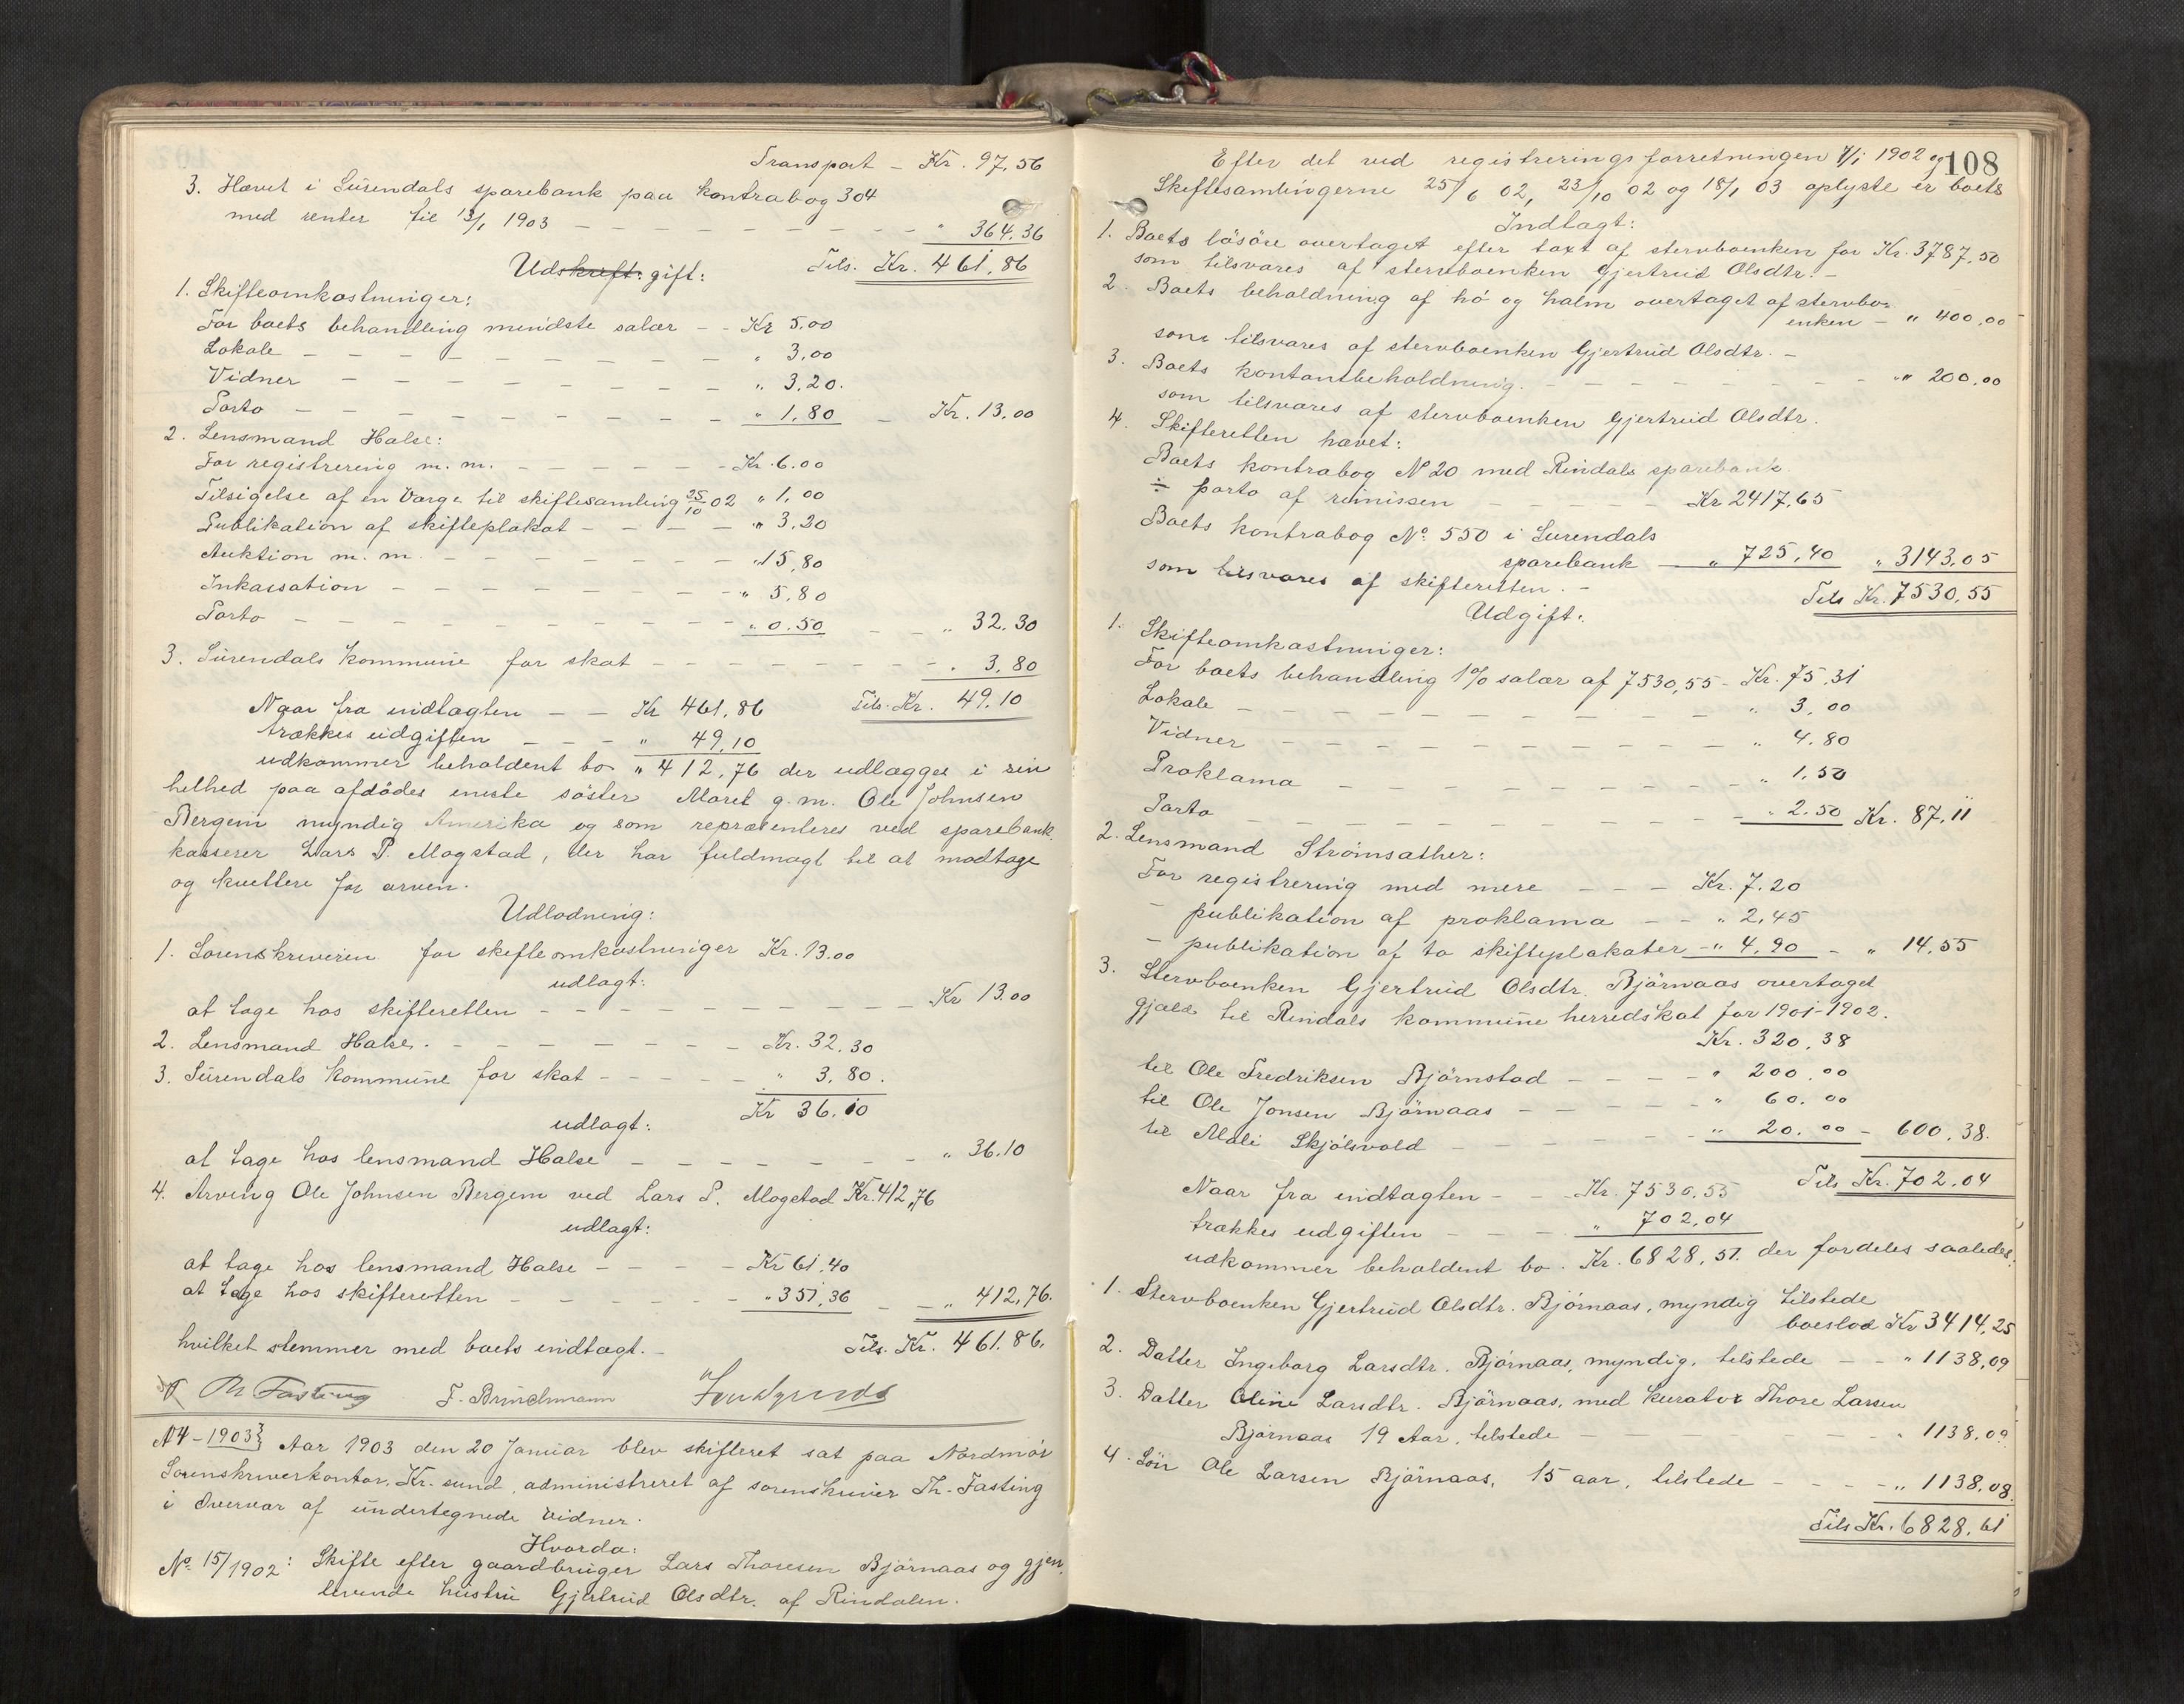 Transport – Kr. 97,56
3. Hævet i Surendals sparebank paa kontrabog 304
med renter til 13/1 1903 – – – – – – – – – " 364.36
Udskrift: gift: Tils. Kr. 461.86
1. Skifteomkostninger:
For boets behandling mindste salær – – Kr 5,00
Lokale – – – – – – – – " 3,00
Vidner – – – – – – – " 3,20.
Porto – – – – – – – – " 1,80 – Kr. 13,00
2. Lensmand Halse:
For registrering m. m. – – – – – – Kr. 6.00
Tilsigelse af en Værge til skiftesamling 25/10 02 " 1,00
Publikation af skifteplakat – – – – – " 3,20
Auktion m. m. – – – – – – – – "15,80
Inkassation – – – – – – – – – " 5,80
Porto – – – – – – – – – – " 0.50 – – " 32.30
3. Surendals kommune for skat – – – – – – – – – " 3,80
Naar fra indtægten – – Kr 461,86 Tils. Kr. 49,10
trækkes udgiften – – – " 49,10
udkommer beholdent bo " 412,76 der udlægges i sin
helhed paa afdødes eneste søster Maret g. m. Ole Johnsen
Bergem myndig Amerika og som repræsenteres ved sparebank-
kasserer Lars P. Mogstad, der har fuldmagt til at modtage
og kvittere for arven.
Udlodning:
1. Sorenskriveren for skifteomkostninger Kr. 13.00
udlagt:
at tage hos skifteretten – – – – – – – – Kr 13.00
2. Lensmand Halse. – – – – – – – Kr. 32.30
3. Surendals kommune for skat – – – – – " 3,80.
Kr 36.10
udlagt:
at tage hos lensmand Halse – – – – – – – " 36.10
4. Arving Ole Johnsen Bergem ved Lars P. Mogstad Kr. 412,76
udlagt:
at tage hos lensmand Halse – – – – Kr 61.40
at tage hos skifteretten – – – – – – " 351,36 – – " 412,76.
hvilket stemmer med boets indtægt. – Tils. Kr. 461.86.
Th Fasting F. Brinchmann
N 4 – 1903 } Aar 1903 den 20 Januar blev skifteret sat paa Nordmør
Sorenskriverkontor, Kr.sund, administreret af sorenskriver Th. Fasting
i Overvær af undertegnede vidner.
Hvorda:
No 15/1902: Skifte efter gaardbruger Lars Thoresen Bjørnaas og gjen-
levende hustru Gjertrud Olsdtr. af Rindalen.
108
Efter det ved registreringsforretningen 7/1 1902 og
Skiftesamlingerne 25/6 02, 23/10 02 og 18/1 03 oplyste er boets
Indtægt:
1. Boets løsøre overtaget efter taxt af stervboenken for Kr. 3787,50
som tilsvares af stervboenken Gjertrud Olsdtr. –
2. Boets beholdning af hø og halm overtaget af stervbo-
enken – " 400,00
som tilsvares af stervboenken Gjertrud Olsdtr. –
3. Boets kontantbeholdning. – – – – – – – – – " 200,00
som tilsvares af stervboenken Gjertrud Olsdtr.
4. Skifteretten hævet:
Boets kontrabog N 20 med Rindals sparebank
÷ porto af remissen – – – – – Kr 2417,65
Boets kontrabog No. 550 i Surendals
sparebank – " 725,40 " 3143,05
som tilsvares af skifteretten. – Tils Kr. 7530,55
Udgift:
1. Skifteomkostninger:
For boets behandling 1% salær af 7530,55 – Kr. 75,31
Lokale – – – – – – – – – – " 3,00
Vidner – – – – – – – – – – " 4,80
Proklama – – – – – – – – – " 1,50
Porto – – – – – – – – – – – " 2.50 Kr. 87,11
2. Lensmand Strømsæther:
For registrering med mere – – – Kr. 7.20
– publikation af proklama – – " 2,45
– publikation af to skifteplakater – " 4,90 – " 14,55
3. Stervboenken Gjertrud Olsdtr. Bjørnaas overtaget
gjæld til Rindals kommune herredskat for 1901–1902.
Kr. 320,38
til Ole Fredriksen Bjørnstad – – – – " 200,00
til Ole Jonsen Bjørnaas – – – – – " 60.00
til Mali Skjølsvold – – – – – – " 20.00 – 600,38.
Tils Kr. 702,04
Naar fra indtægten – – Kr. 7530,55
trækkes udgiften – – – " 702,04
udkommer beholdent bo. Kr. 6828,51. der fordeles saaledes:
1. Stervboenken Gjertrud Olsdtr. Bjørnaas, myndig tilstede
boeslod Kr 3414,25
2. Datter Ingeborg Larsdtr. Bjørnaas, myndig, tilstede – – " 1138,09
3. Datter Oline Larsdtr. Bjørnaas, med kurator Thore Larsen
Bjørnaas 19 Aar, tilstede – – – – – – – " 1138,09
4. Søn Ole Larsen Bjørnaas, 15 aar, tilstede – – – – " 1138,08.
Tils Kr. 6828,61